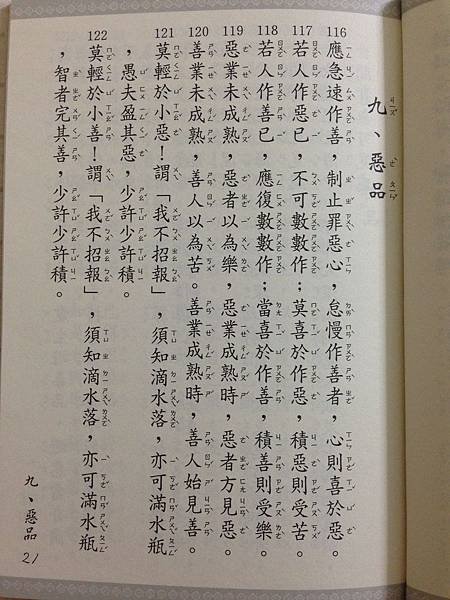 九、惡品
116 應急速作善,制止罪惡心,怠慢作善者,心則喜於惡。
117 若人作惡已,不可數數作;莫喜於作惡,積惡則受苦。
118 若人作善已,應復數數作;當喜於作善,積善則受樂。
119 惡業未成熟,惡者以為樂,惡業成熟時,惡者方見惡。
120 善業未成熟,善人以為苦。善業成熟時,善人始見善。
121 莫輕於小惡!謂「我不招報」,須知滴水落,亦可滿水瓶
,愚夫盈其惡,少許少許積。
122 莫輕於小善!謂「我不招報」,須知滴水落,亦可滿水瓶
,智者完其善,少許少許積。
九、惡品 21